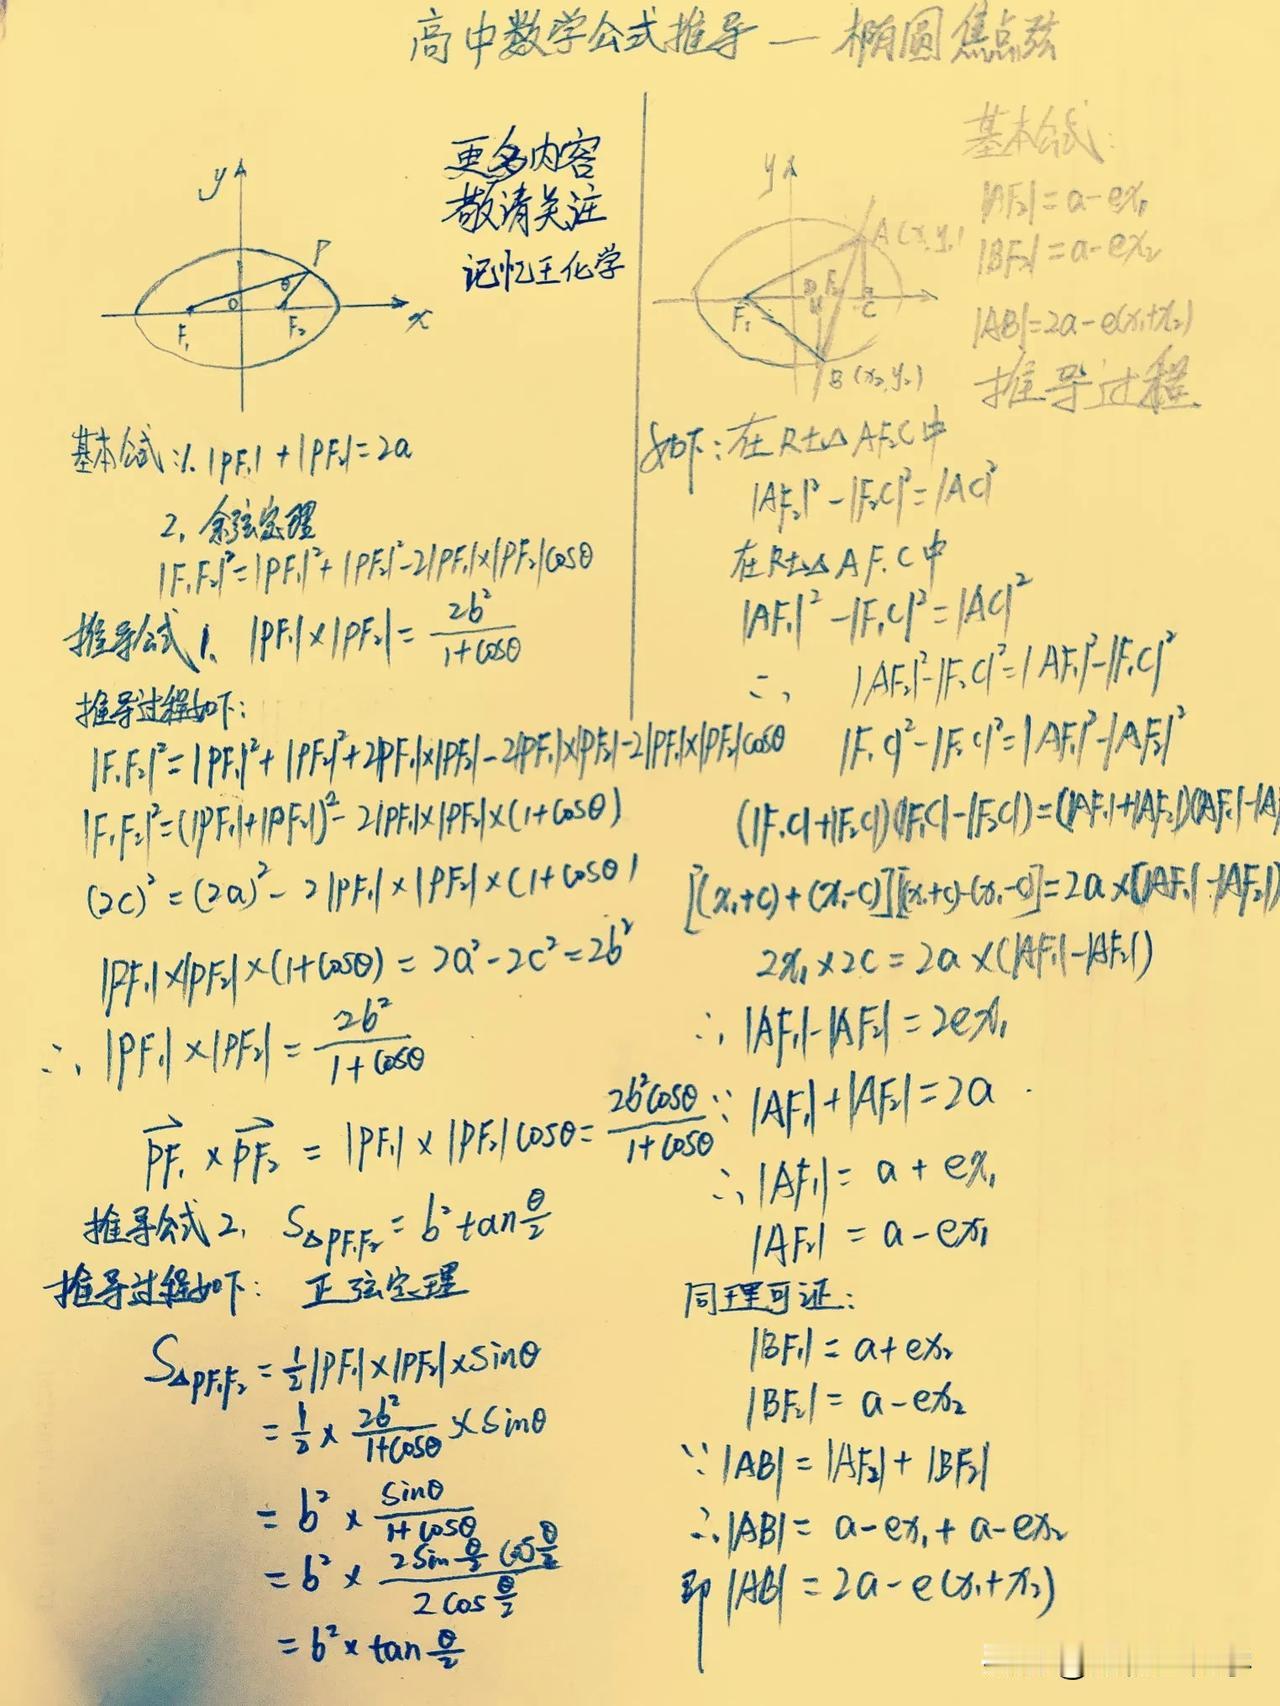 高中数学公式推导 — 椭圆焦点弦
更多内容
敬请关注
记忆王化学
y
P
θ
O
F₁
F₂
x
基本公式:1. |PF₁|+|PF₂|=2a
2, 余弦定理
|F₁F₂|²=|PF₁|²+|PF₂|²-2|PF₁|×|PF₂|cosθ
推导公式1、|PF₁|×|PF₂|=\frac{2b²}{1+cosθ}
推导过程如下:
|F₁F₂|²=|PF₁|²+|PF₂|²+2|PF₁|×|PF₂|-2|PF₁|×|PF₂|-2|PF₁|×|PF₂|cosθ
|F₁F₂|²=(|PF₁|+|PF₂|)²-2|PF₁|×|PF₂|×(1+cosθ)
(2c)²=(2a)²-2|PF₁|×|PF₂|×(1+cosθ)
|PF₁|×|PF₂|×(1+cosθ)=2a²-2c²=2b²
∴ |PF₁|×|PF₂|=\frac{2b²}{1+cosθ}
\vec{PF₁}×\vec{PF₂}=|PF₁|×|PF₂|cosθ=\frac{2b²cosθ}{1+cosθ}
推导公式2, S△PF₁F₂=b²tan\frac{θ}{2}
推导过程如下: 正弦定理
S△PF₁F₂=\frac{1}{2}|PF₁|×|PF₂|×sinθ
=\frac{1}{2}×\frac{2b²}{1+cosθ}×sinθ
=b²×\frac{sinθ}{1+cosθ}
=b²×\frac{2sin\frac{θ}{2}cos\frac{θ}{2}}{2cos\frac{θ}{2}}
=b²×tan\frac{θ}{2}
y
A(x₁y₁)
F₁
F₂
C
B(x₂,y₂)
基本公式:
|AF₂|=a-ex₁
|BF₂|=a-ex₂
|AB|=2a-e(x₁+x₂)
推导过程
如下:在Rt△AF₂C中
|AF₂|²-|F₂C|²=|AC|²
在Rt△AF₁C中
|AF₁|²-|F₁C|²=|AC|²
∴ |AF₂|²-|F₂C|²=|AF₁|²-|F₁C|²
|F₁C|²-|F₂C|²=|AF₁|²-|AF₂|²
(|F₁C|+|F₂C|)(|F₁C|-|F₂C|)=(|AF₁|+|AF₂|)(|AF₁|-|A
[(x₁+c)+(x₁-c)][(x₁+c)-(x₁-c)]=2a×(|AF₁|-|AF₂|)
2x₁×2c=2a×(|AF₁|-|AF₂|)
∴ |AF₁|-|AF₂|=2ex₁
∵ |AF₁|+|AF₂|=2a
∴ |AF₁|=a+ex₁
|AF₂|=a-ex₁
同理可证:
|BF₁|=a+ex₂
|BF₂|=a-ex₂
∵ |AB|=|AF₂|+|BF₂|
∴ |AB|=a-ex₁+a-ex₂
即 |AB|=2a-e(x₁+x₂)